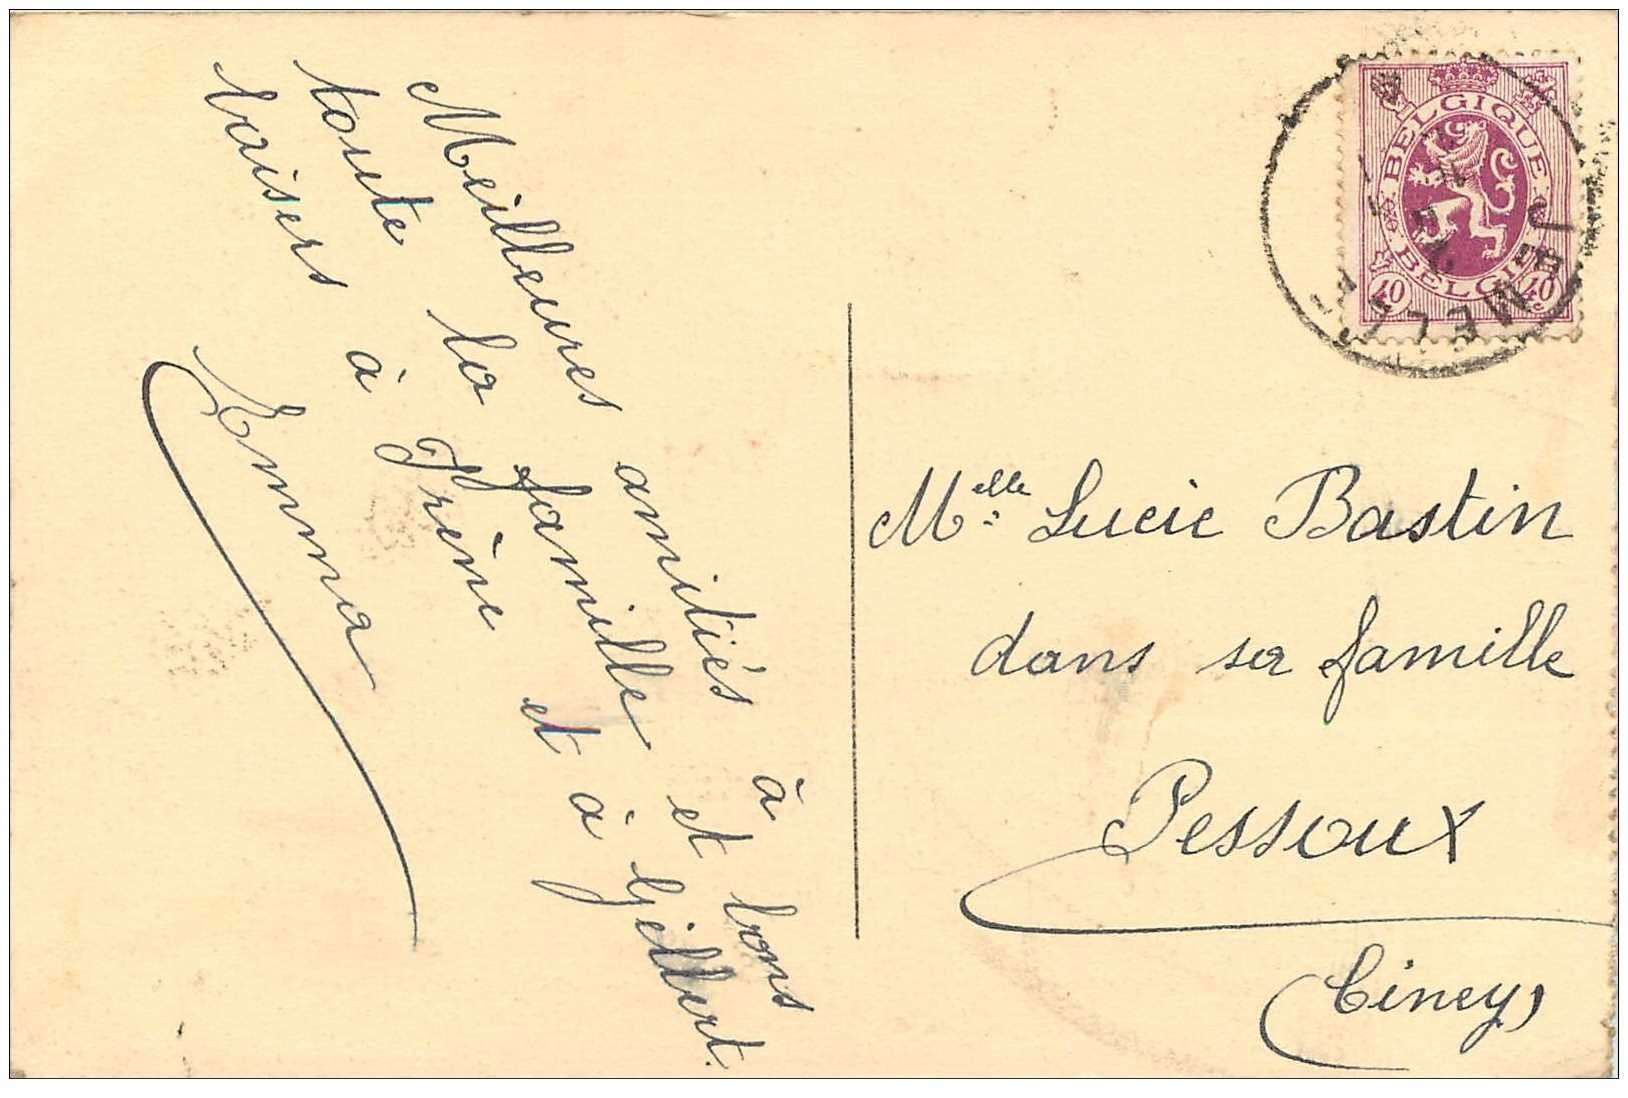 Meilleures amitiés à
toute la famille et bons
baisers à Irène et à Gilbert.
Emma
BELGIQUE
BELGIE
40 40
JEMELLE
Melle Lucie Bastin
dans sa famille
Pessoux
(Ciney)